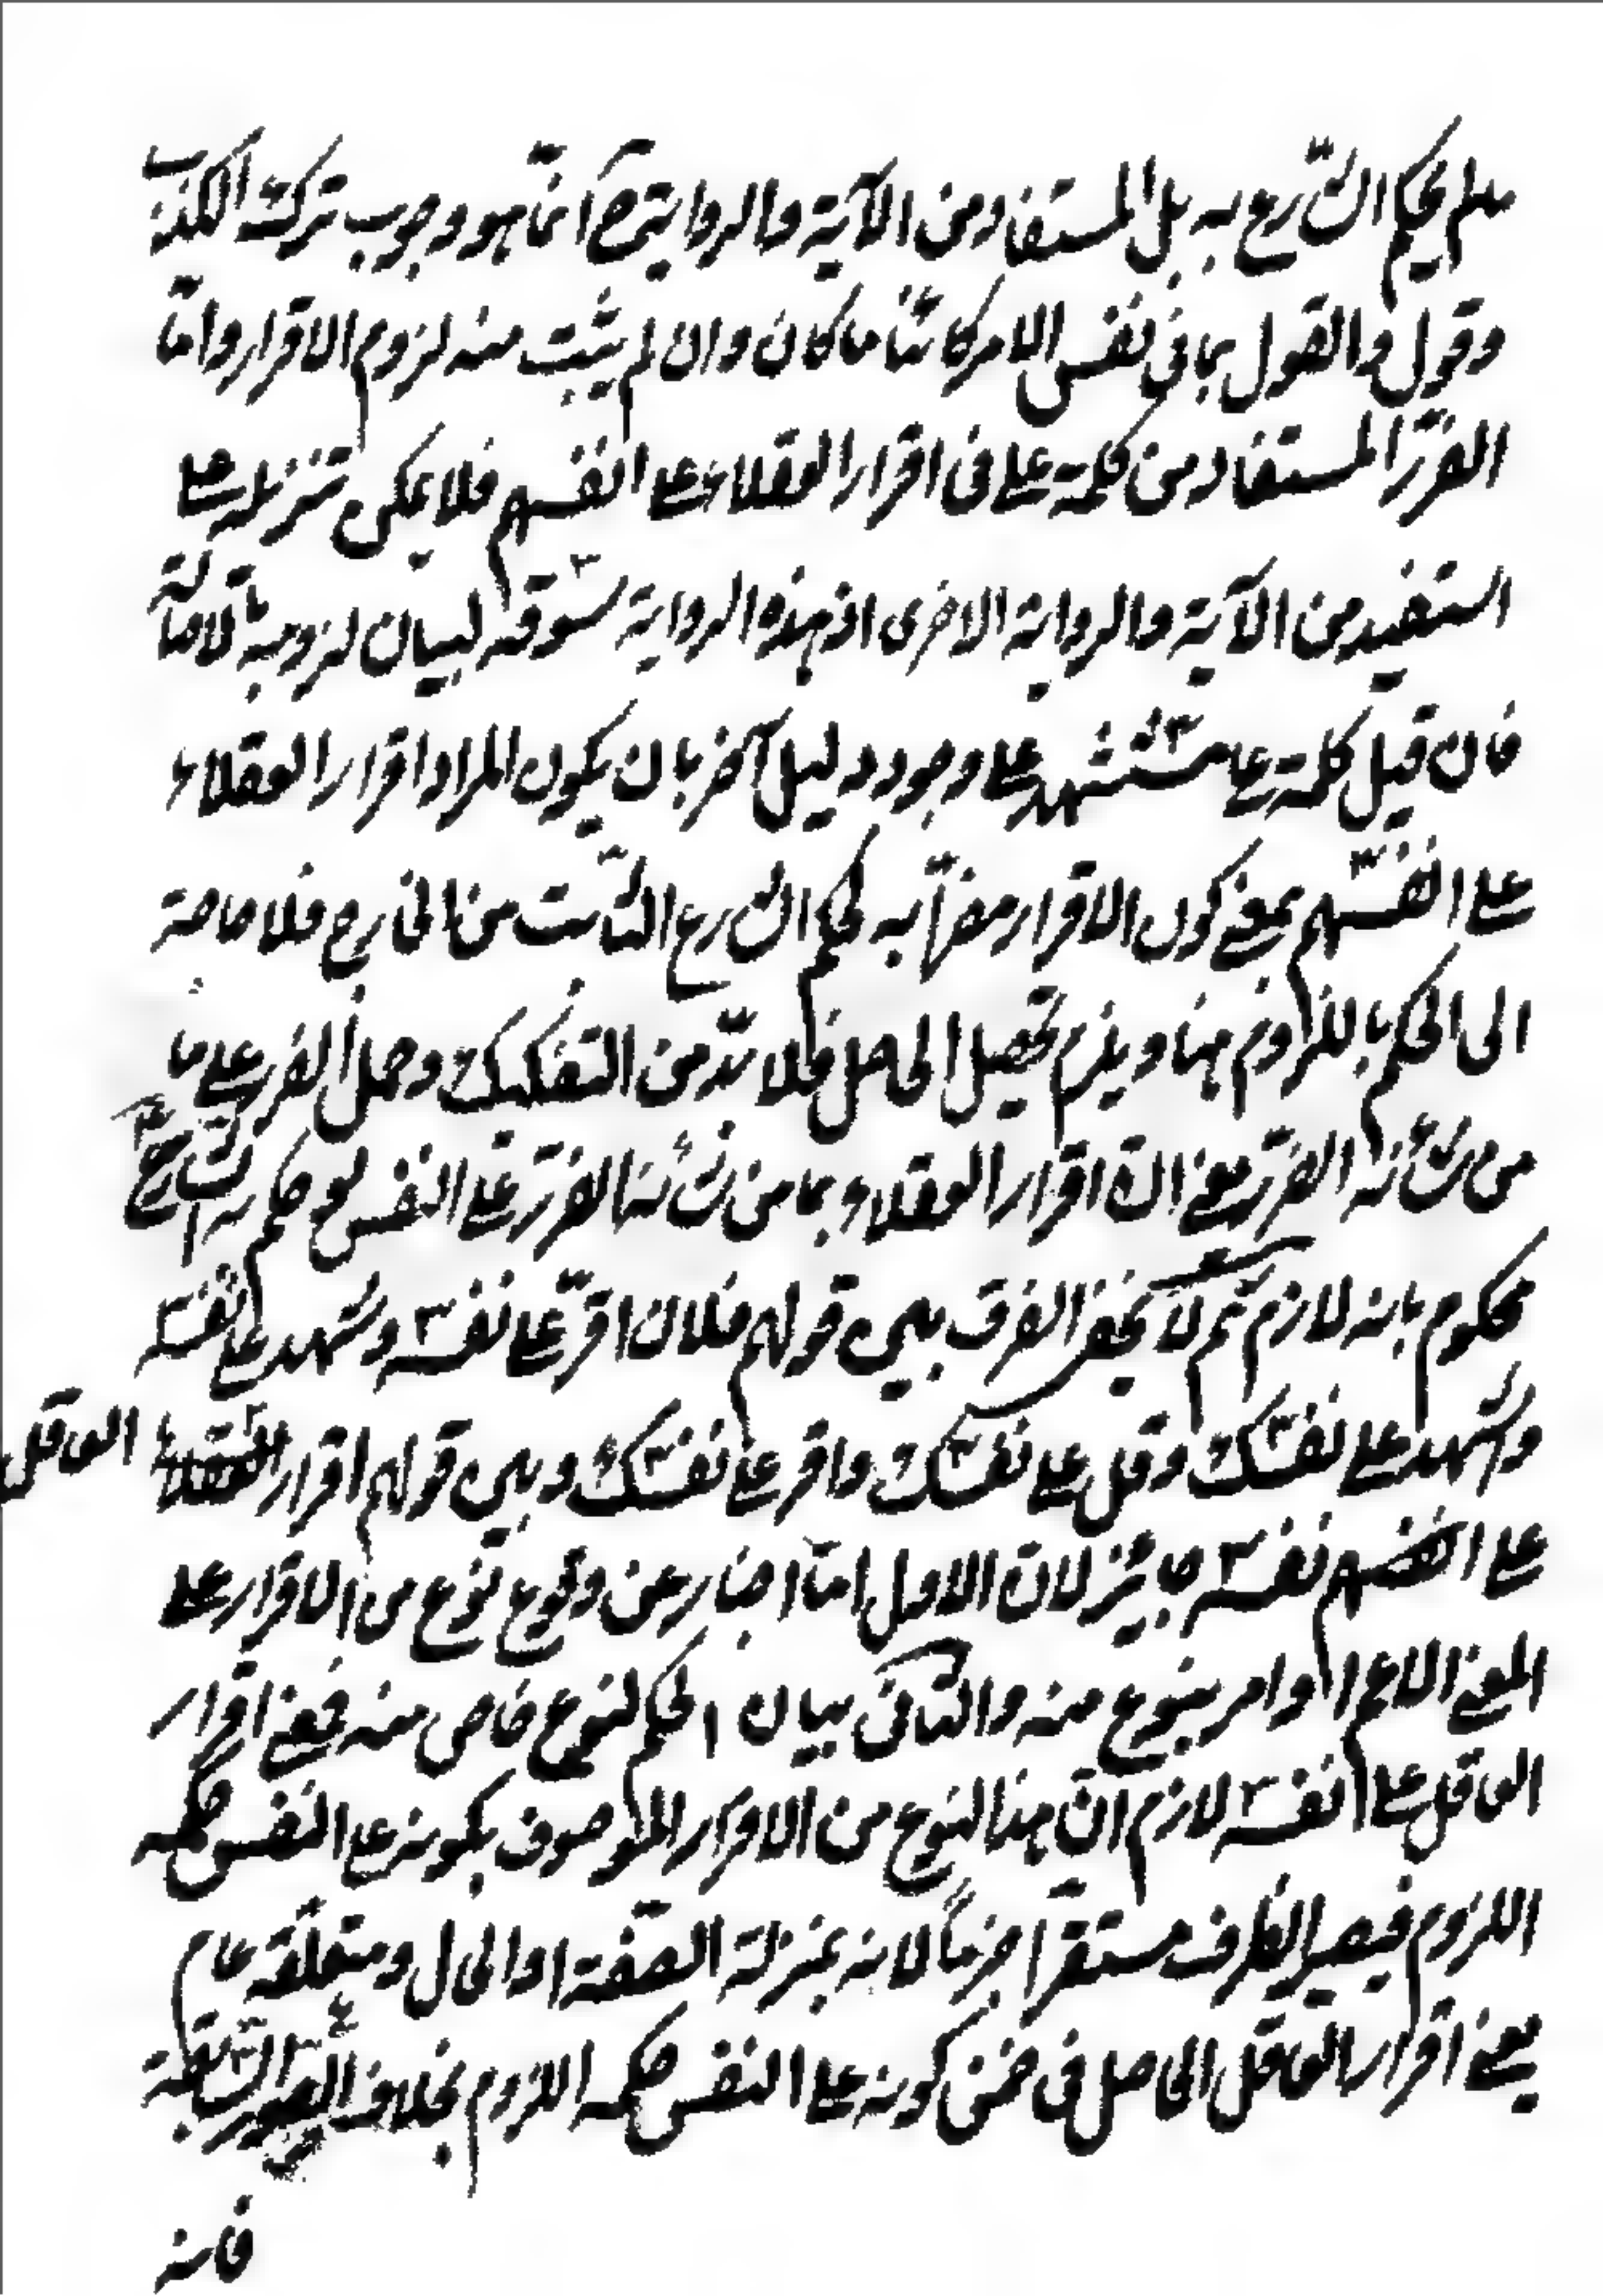 ملم يحكم الشّارع به بل المستفاد من الآية والرواية ح انّما هو وجوب ترك الكذب
وقول والقول بما فى نفس الامر كائناً ما كان وان لم يثبت منه لزوم الاقرار وامّا
الضرر المستفاد من كلمة على فى اقرار العقلاء على انفسهم فلا يمكن تنزيله على
استفيد من الآية والرواية الاخرى اذ هذه الرواية مسّوقه لبيان لزومية لا محالة
فان قيل كلمة على تستشهد على وجود دليل آخر بان يكون المراد اقرار العقلاء
على انفسهم بمعنى كون الاقرار مضرّاً به لحكم الشارع الثابت من الخارج فلا حاجة
الى الحكم باللزوم هنا ويلزم تحصيل الحاصل فلا بدّ من التفكيك وحمل الضرر على ما
من شأنه الضرر يعنى انّ اقرار العقلاء بما من شأنه الضرر على النفس لو حكم به الشارع
محكوم بانه لازم ثم لا يخفى الفرق بين قولهم فلان اقرّ على نفسه وشهد على نفسه
واشهد على نفسك وقل على نفسك واقر على نفسك وبين قولهم اقرار العقلاء العاقل
على انفسهم نفسه جائز لان الاول امّا اخبار عن وقوع نوع من الاقرار على
المعنى الاعم او امر بنوع منه والثانى بيان الحكم لنوع خاص منه فمعنى اقرار
العاقل على نفسه لازم انّ هذا النوع من الاقرار الموصوف بكونه على النفس حكمه
اللزوم فيصير الظرف مستقراً جزماً لانه بمنزلة الصّفة او الحال ومتعلّقه عام
يعنى اقرار العاقل الحاصل فى ضمن كونه على النفس حكمه اللزوم بخلاف الصور السّابقة
فانه